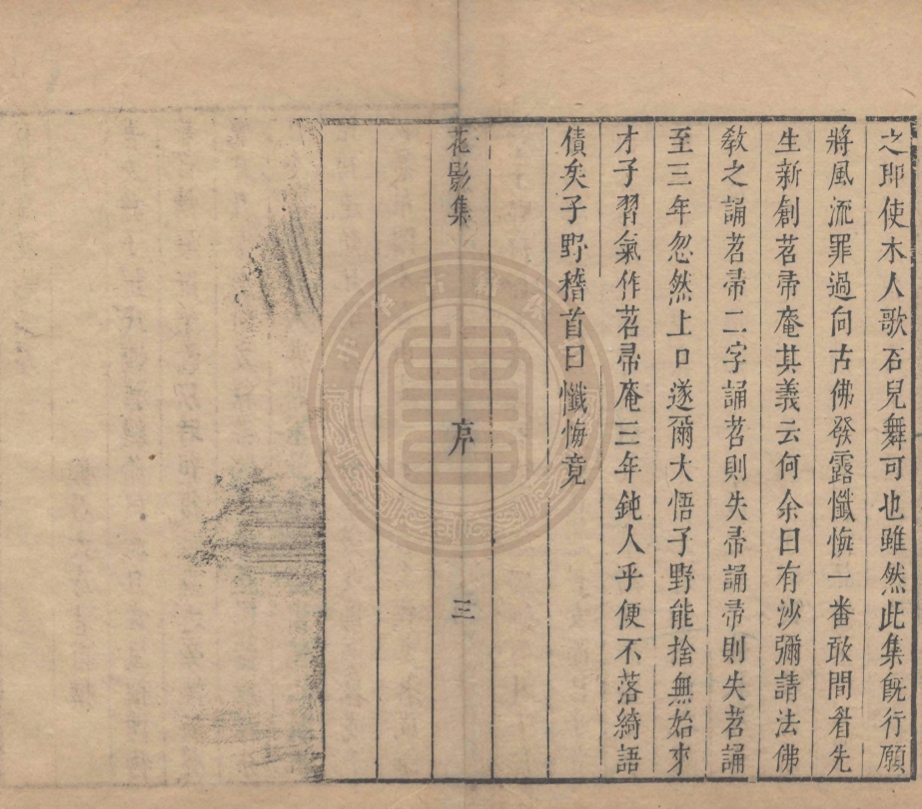 之即使木人歌石兒舞可也雖然此集旣行願
將風流罪過向古佛發露懺悔一番敢問眉先
生新創苕帚庵其義云何余曰有沙彌請法佛
敎之誦苕帚二字誦苕則失帚誦帚則失苕誦
至三年忽然上口遂爾大悟子野能捨無始來
才子習氣作苕帚庵三年鈍人乎便不落綺語
債矣子野稽首曰懺悔竟
花影集
序
三